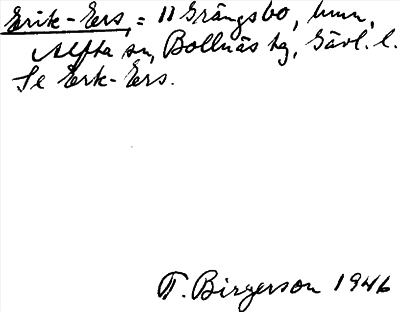 Erik-Ers, = 11 Grängsbo, hmn,
Alfta sn, Bollnäs tg, Gävl. l.
Se Erk-Ers.
T. Birgerson 1946